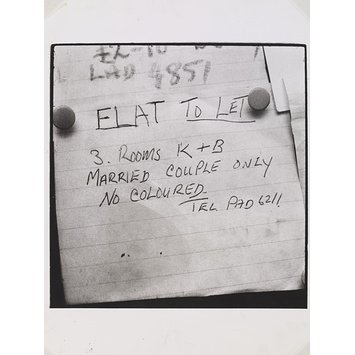 LAD 4851
FLAT TO LET
3. ROOMS K + B
MARRIED COUPLE ONLY
NO COLOURED.
TEL PAD 6211